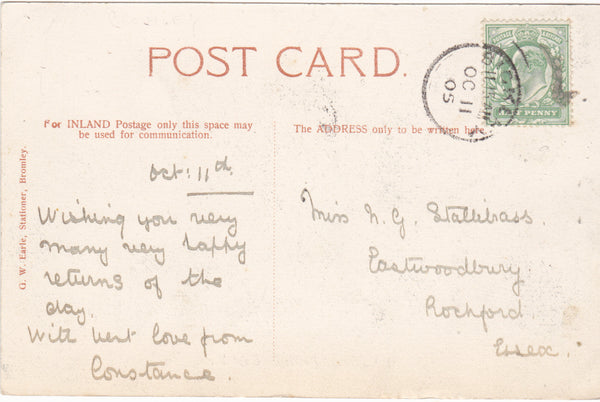 POST CARD.
For INLAND Postage only this space may
be used for communication.
The ADDRESS only to be written here.
G. W. Earle, Stationer, Bromley.
HALF PENNY
OC 11
05
Oct: 11th.
Wishing you very
many very happy
returns of the
day.
With best love from
Constance.
Miss N. G. Stallibrass.
Eastwoodbury.
Rochford.
Essex.